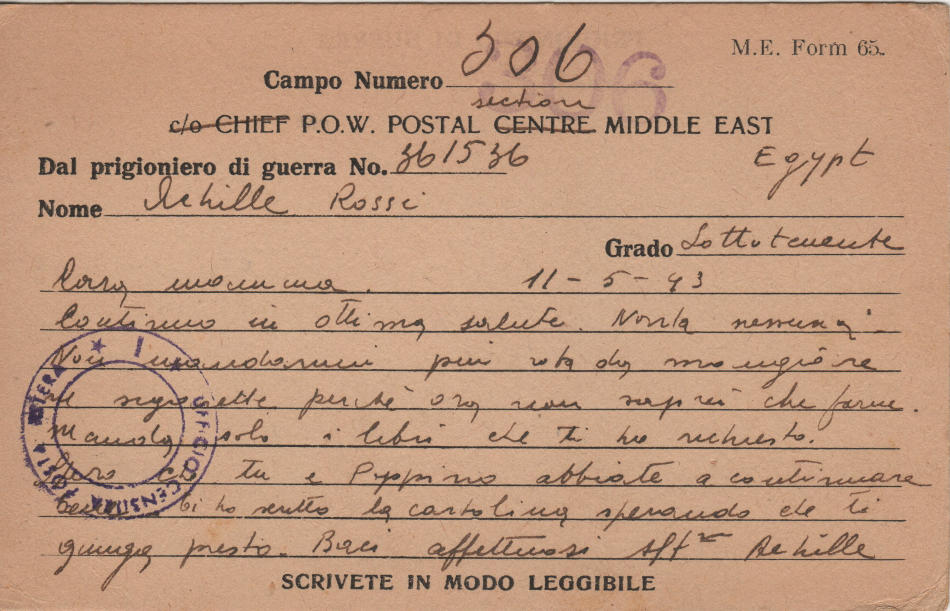 M.E. Form 65.
Campo Numero 306
306
section
c/o CHIEF P.O.W. POSTAL CENTRE MIDDLE EAST
Dal prigioniero di guerra No. 361536 Egypt
Nome Achille Rossi
Grado Sottotenente
Cara mamma. 11-5-43
Continuo in ottima salute. Novità nessuna.
Non mandarmi più roba da mangiare
né sigarette perché ora non saprei che farne.
Manda solo i libri che ti ho richiesto.
Spero che tu e Peppino abbiate a continuare
bene. Ti ho scritto la cartolina sperando che ti
giunga presto. Baci affettuosi aff.mo Achille
UFFICIO CENSURA POSTA ESTERA
SCRIVETE IN MODO LEGGIBILE